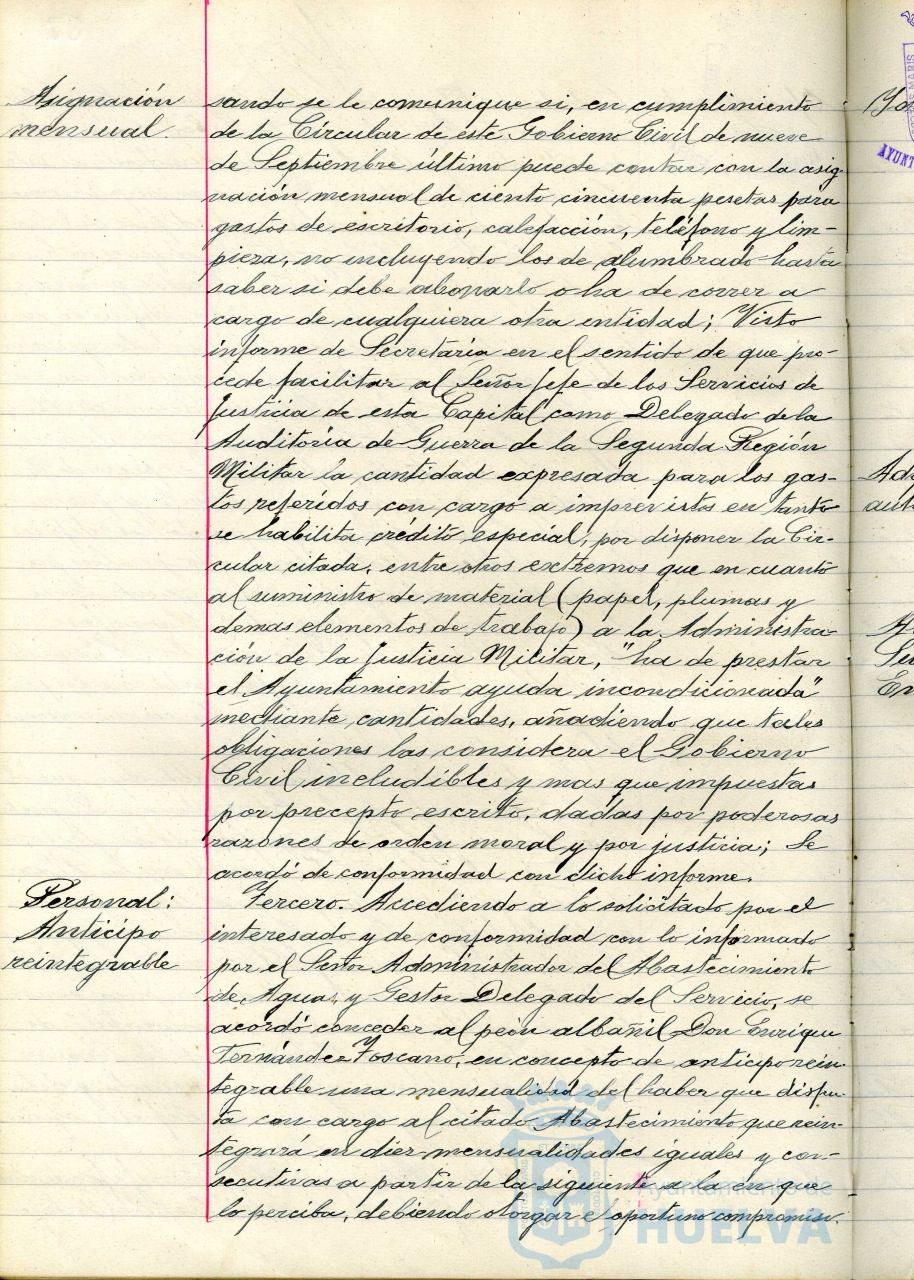 Asignación
mensual.
sando se le comunique si, en cumplimiento
de la Circular de este Gobierno Civil de nueve
de Septiembre último puede contar con la asig-
nación mensual de ciento cincuenta pesetas para
gastos de escritorio, calefacción, teléfono y lim-
pieza, no incluyendo los de alumbrado hasta
saber si debe abonarlo o ha de correr a
cargo de cualquiera otra entidad; Visto
informe de Secretaría en el sentido de que pro-
cede facilitar al Señor Jefe de los Servicios de
Justicia de esta Capital como Delegado de la
Auditoría de Guerra de la Segunda Región
Militar la cantidad expresada para los gas-
tos referidos con cargo a imprevistos en tanto
se habilita crédito especial, por disponer la Cir-
cular citada, entre otros extremos que en cuanto
al suministro de material (papel, plumas y
demas elementos de trabajo) a la Administra-
ción de la Justicia Militar, "ha de prestar
el Ayuntamiento ayuda incondicionada"
mediante cantidades, añadiendo que tales
obligaciones las considera el Gobierno
Civil includibles y mas que impuestas
por precepto escrito, dadas por poderosas
razones de orden moral y por justicia; Se
acordó de conformidad con dicho informe.
Personal:
Anticipo
reintegrable
Tercero. Accediendo a lo solicitado por el
interesado y de conformidad con lo informado
por el Señor Administrador del Abastecimiento
de Agua, y Gestor Delegado del Servicio, se
acordó conceder al peón albañil Don Enrique
Fernández Toscano, en concepto de anticipo rein-
tegrable una mensualidad del haber que disfru-
ta con cargo al citado Abastecimiento que rein-
tegrará en diez mensualidades iguales y con-
secutivas a partir de la siguiente a la en que
lo perciba, debiendo otorgar el oportuno compromiso.
Ayuntamiento de
HUELVA